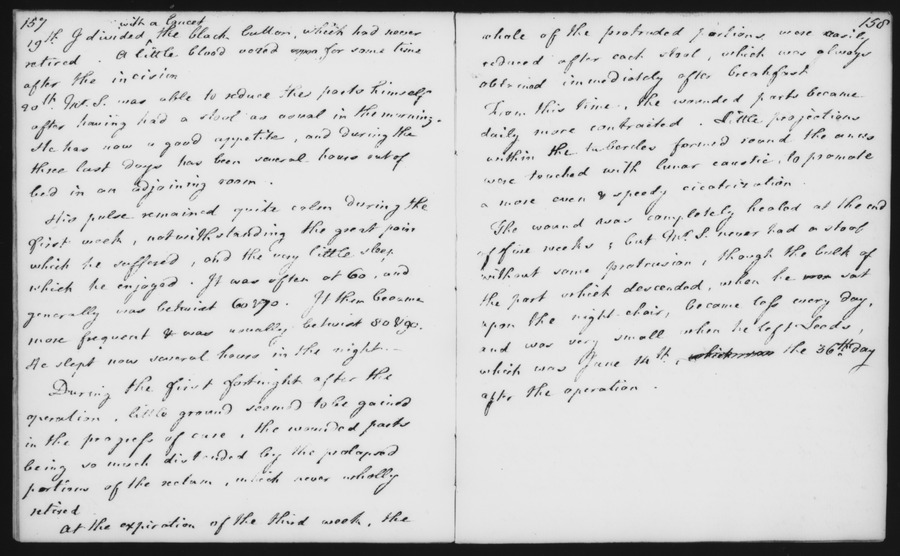 157
with a lancet
19th I divided the black button, which had never
retired. A little blood oozed for some time
after the incision
20th Mr. S. was able to reduce the parts himself
after having had a stool as usual in the morning.
He has now a good appetite, and during the
three last days has been several hours out of
bed in an adjoining room.
His pulse remained quite calm during the
first week, notwithstanding the great pain
which he suffered, and the very little sleep
which he enjoyed. It was often at 60, and
generally was betwixt 60 & 70. It then became
more frequent & was usually betwixt 80 & 90.
He slept now several hours in the night.—
During the first fortnight after the
operation, little ground seemed to be gained
in the progress of cure, the wounded parts
being so much distended by the prolapsed
portions of the rectum, which never wholly
retired
At the expiration of the third week, the
158
whole of the protruded portions were easily
reduced after each stool, which was always
obtained immediately after breakfast.
From this time, the wounded parts became
daily more contracted. Little projections
within the tubercles formed round the anus
were touched with lunar caustic, to promote
a more even & speedy cicatrization.
The wound was completely healed at the end
of five weeks; but Mr. S. never had a stool
without some protrusion, though the bulk of
the part which descended, when he sat
upon the night-chair, became less every day,
and was very small when he left Leeds,
which was June 14th, which was the 36th day
after the operation.